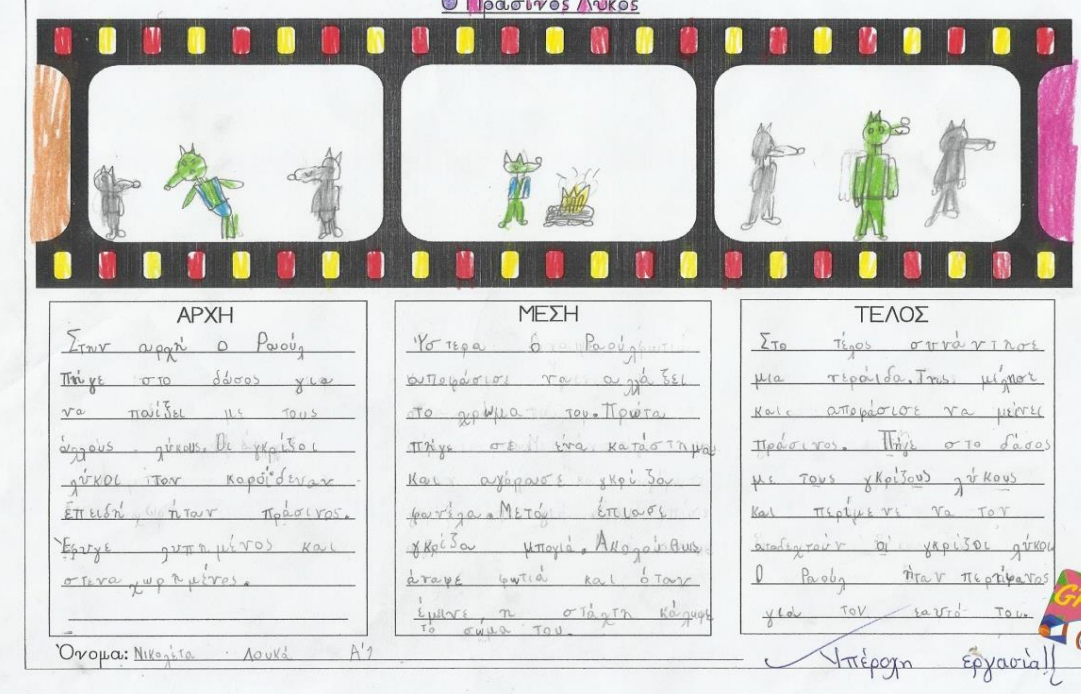 Ο Πράσινος Λύκος
ΑΡΧΗ
Στην αρχή ο Ραούλ
πήγε στο δάσος για
να παίξει με τους
άλλους λύκους. Οι γκρίζοι
λύκοι τον κορόιδεναν
επειδή ήταν πράσινος.
Έφυγε λυπημένος και
στεναχωρημένος.
ΜΕΣΗ
Ύστερα ο Ραούλ
αποφάσισε να αλλάξει
το χρώμα του. Πρώτα
πήγε σε ένα κατάστημα
και αγόρασε γκρίζα
φανέλα. Μετά έπιασε
γκρίζα μπογιά. Ακολούθως
άναψε φωτιά και όταν
έμεινε η στάχτη κάλυψε
το σώμα του.
ΤΕΛΟΣ
Στο τέλος συνάντησε
μια νεράιδα. Της μίλησε
και αποφάσισε να μείνει
πράσινος. Πήγε στο δάσος
με τους γκρίζους λύκους
και περίμενε να τον
αποδεχτούν οι γκρίζοι λύκοι
Ο Ραούλ ήταν περήφανος
για τον εαυτό του.
Όνομα: Νικολέτα Λουκά Α'1
Υπέροχη εργασία!!